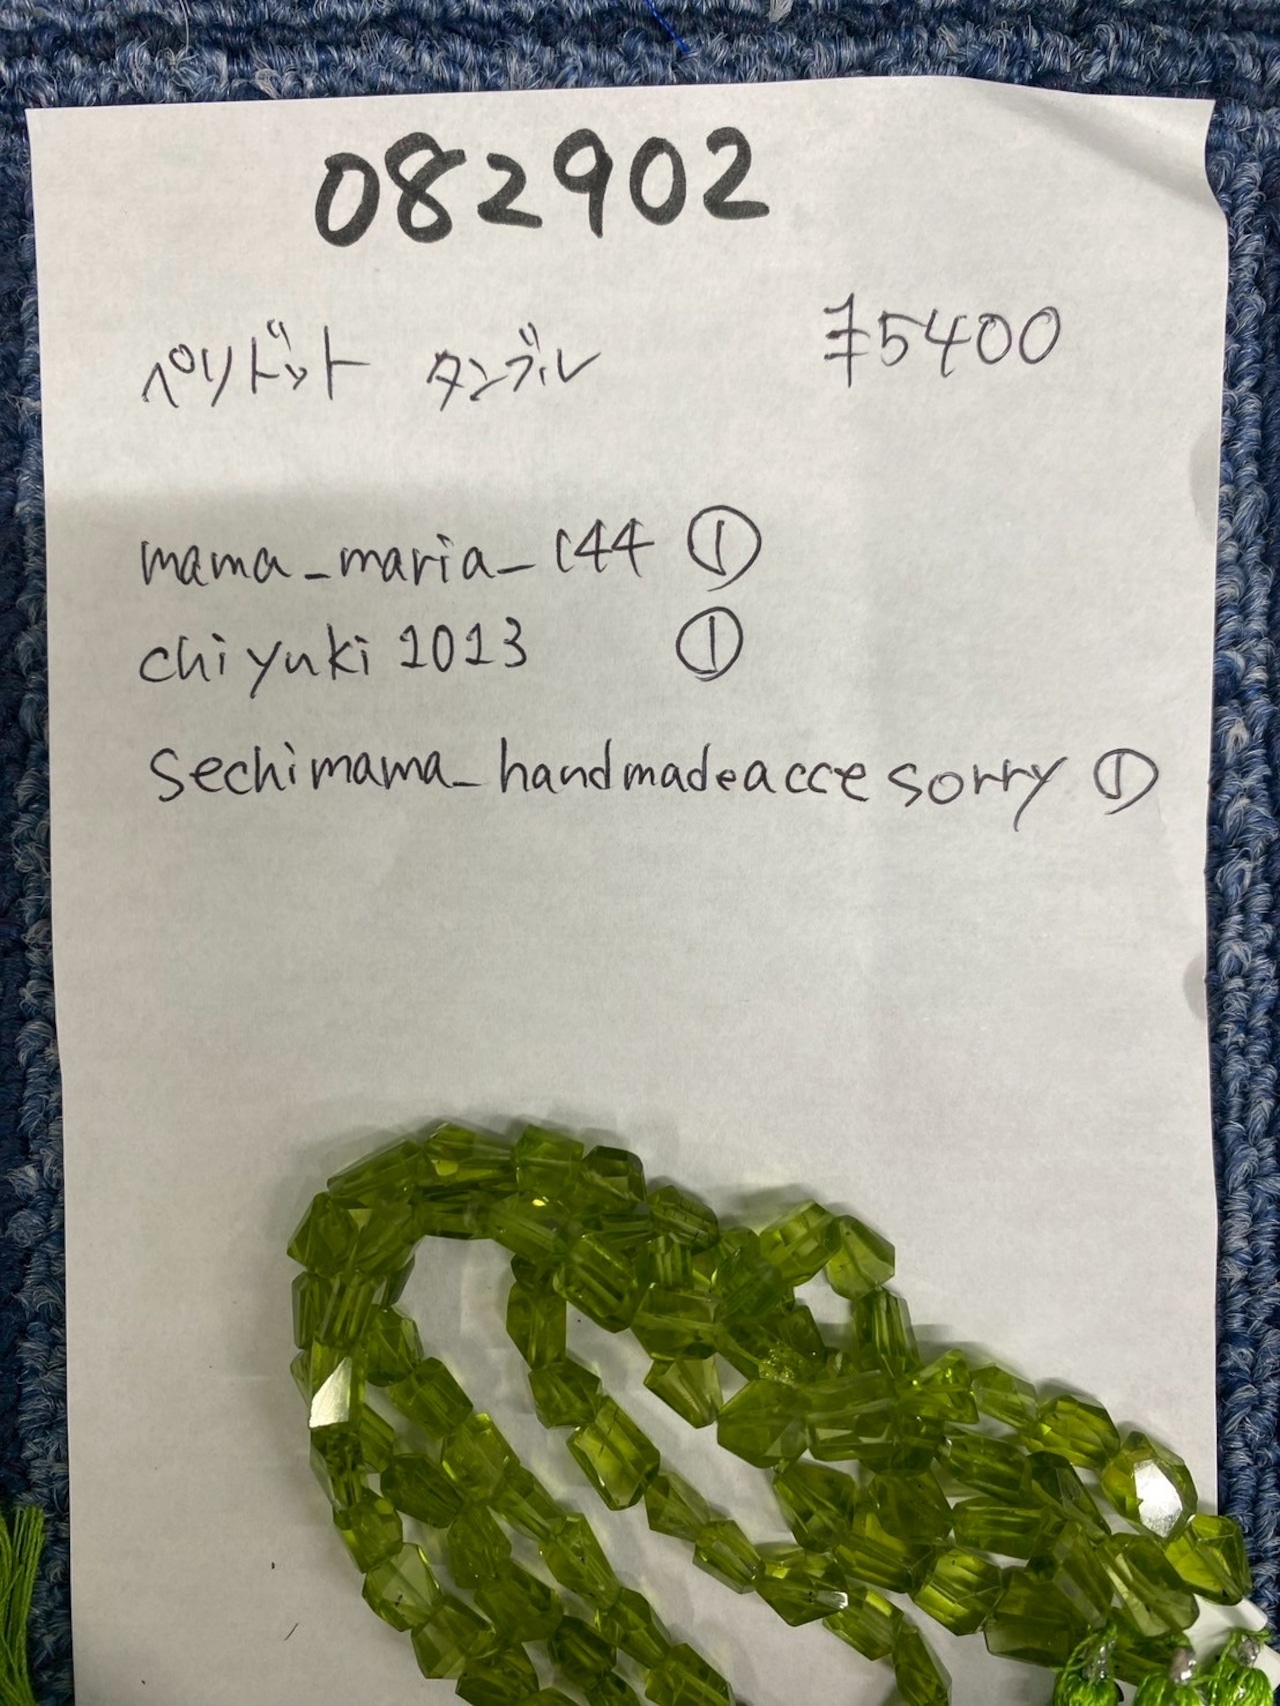 082902
ペリドット タンブル ¥5400
mama_maria_144 ①
chiyuki1013 ①
sechimama_handmadeaccesorry ①